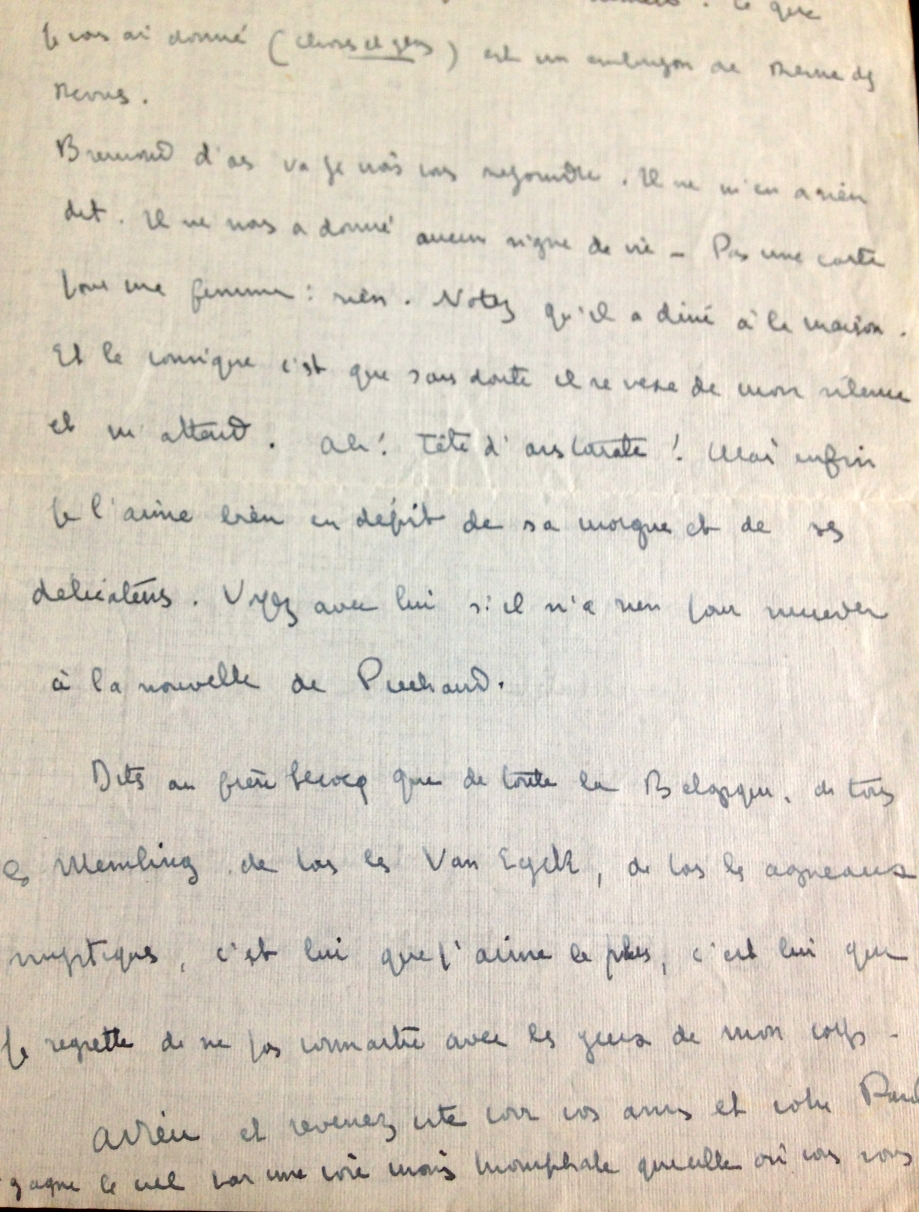 ce que
je vous ai donné (choses et gens) est un embryon de Revue des
Revues.
Bremond d'ars va je crois vous rejoindre. Il ne m'en a rien
dit. Il ne nous a donné aucun signe de vie – Pas une carte
pour ma femme : rien. Notez qu'il a diné à la maison.
Et le comique c'est que sans doute il se vexe de mon silence
et m'attend. Ah! Tête d'aristocrate! Mais enfin
je l'aime bien en dépit de sa morgue et de ses
délicatesses. Voyez avec lui s'il n'a rien pour succéder
à la nouvelle de Puchaud.
Dites au frère Lecocq que de toute la Belgique, de tous
les Memling de tous les Van Eyck, de tous les agneaux
mystiques, c'est lui que j'aime le plus, c'est lui que
je regrette de ne pas connaitre avec les yeux de mon corps –
Adieu et revenez vite voir vos amis et votre
gagne le ciel par une voie moins triomphale que celle où vous vous